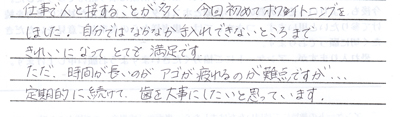 仕事で人と接することが多く、今回初めてホワイトニングを
しました。自分ではなかなか手入れできないところまで
きれいになって とても 満足です。
ただ、時間が長いのが アゴが疲れるのが難点ですが…
定期的に続けて、歯を大事にしたいと思っています。